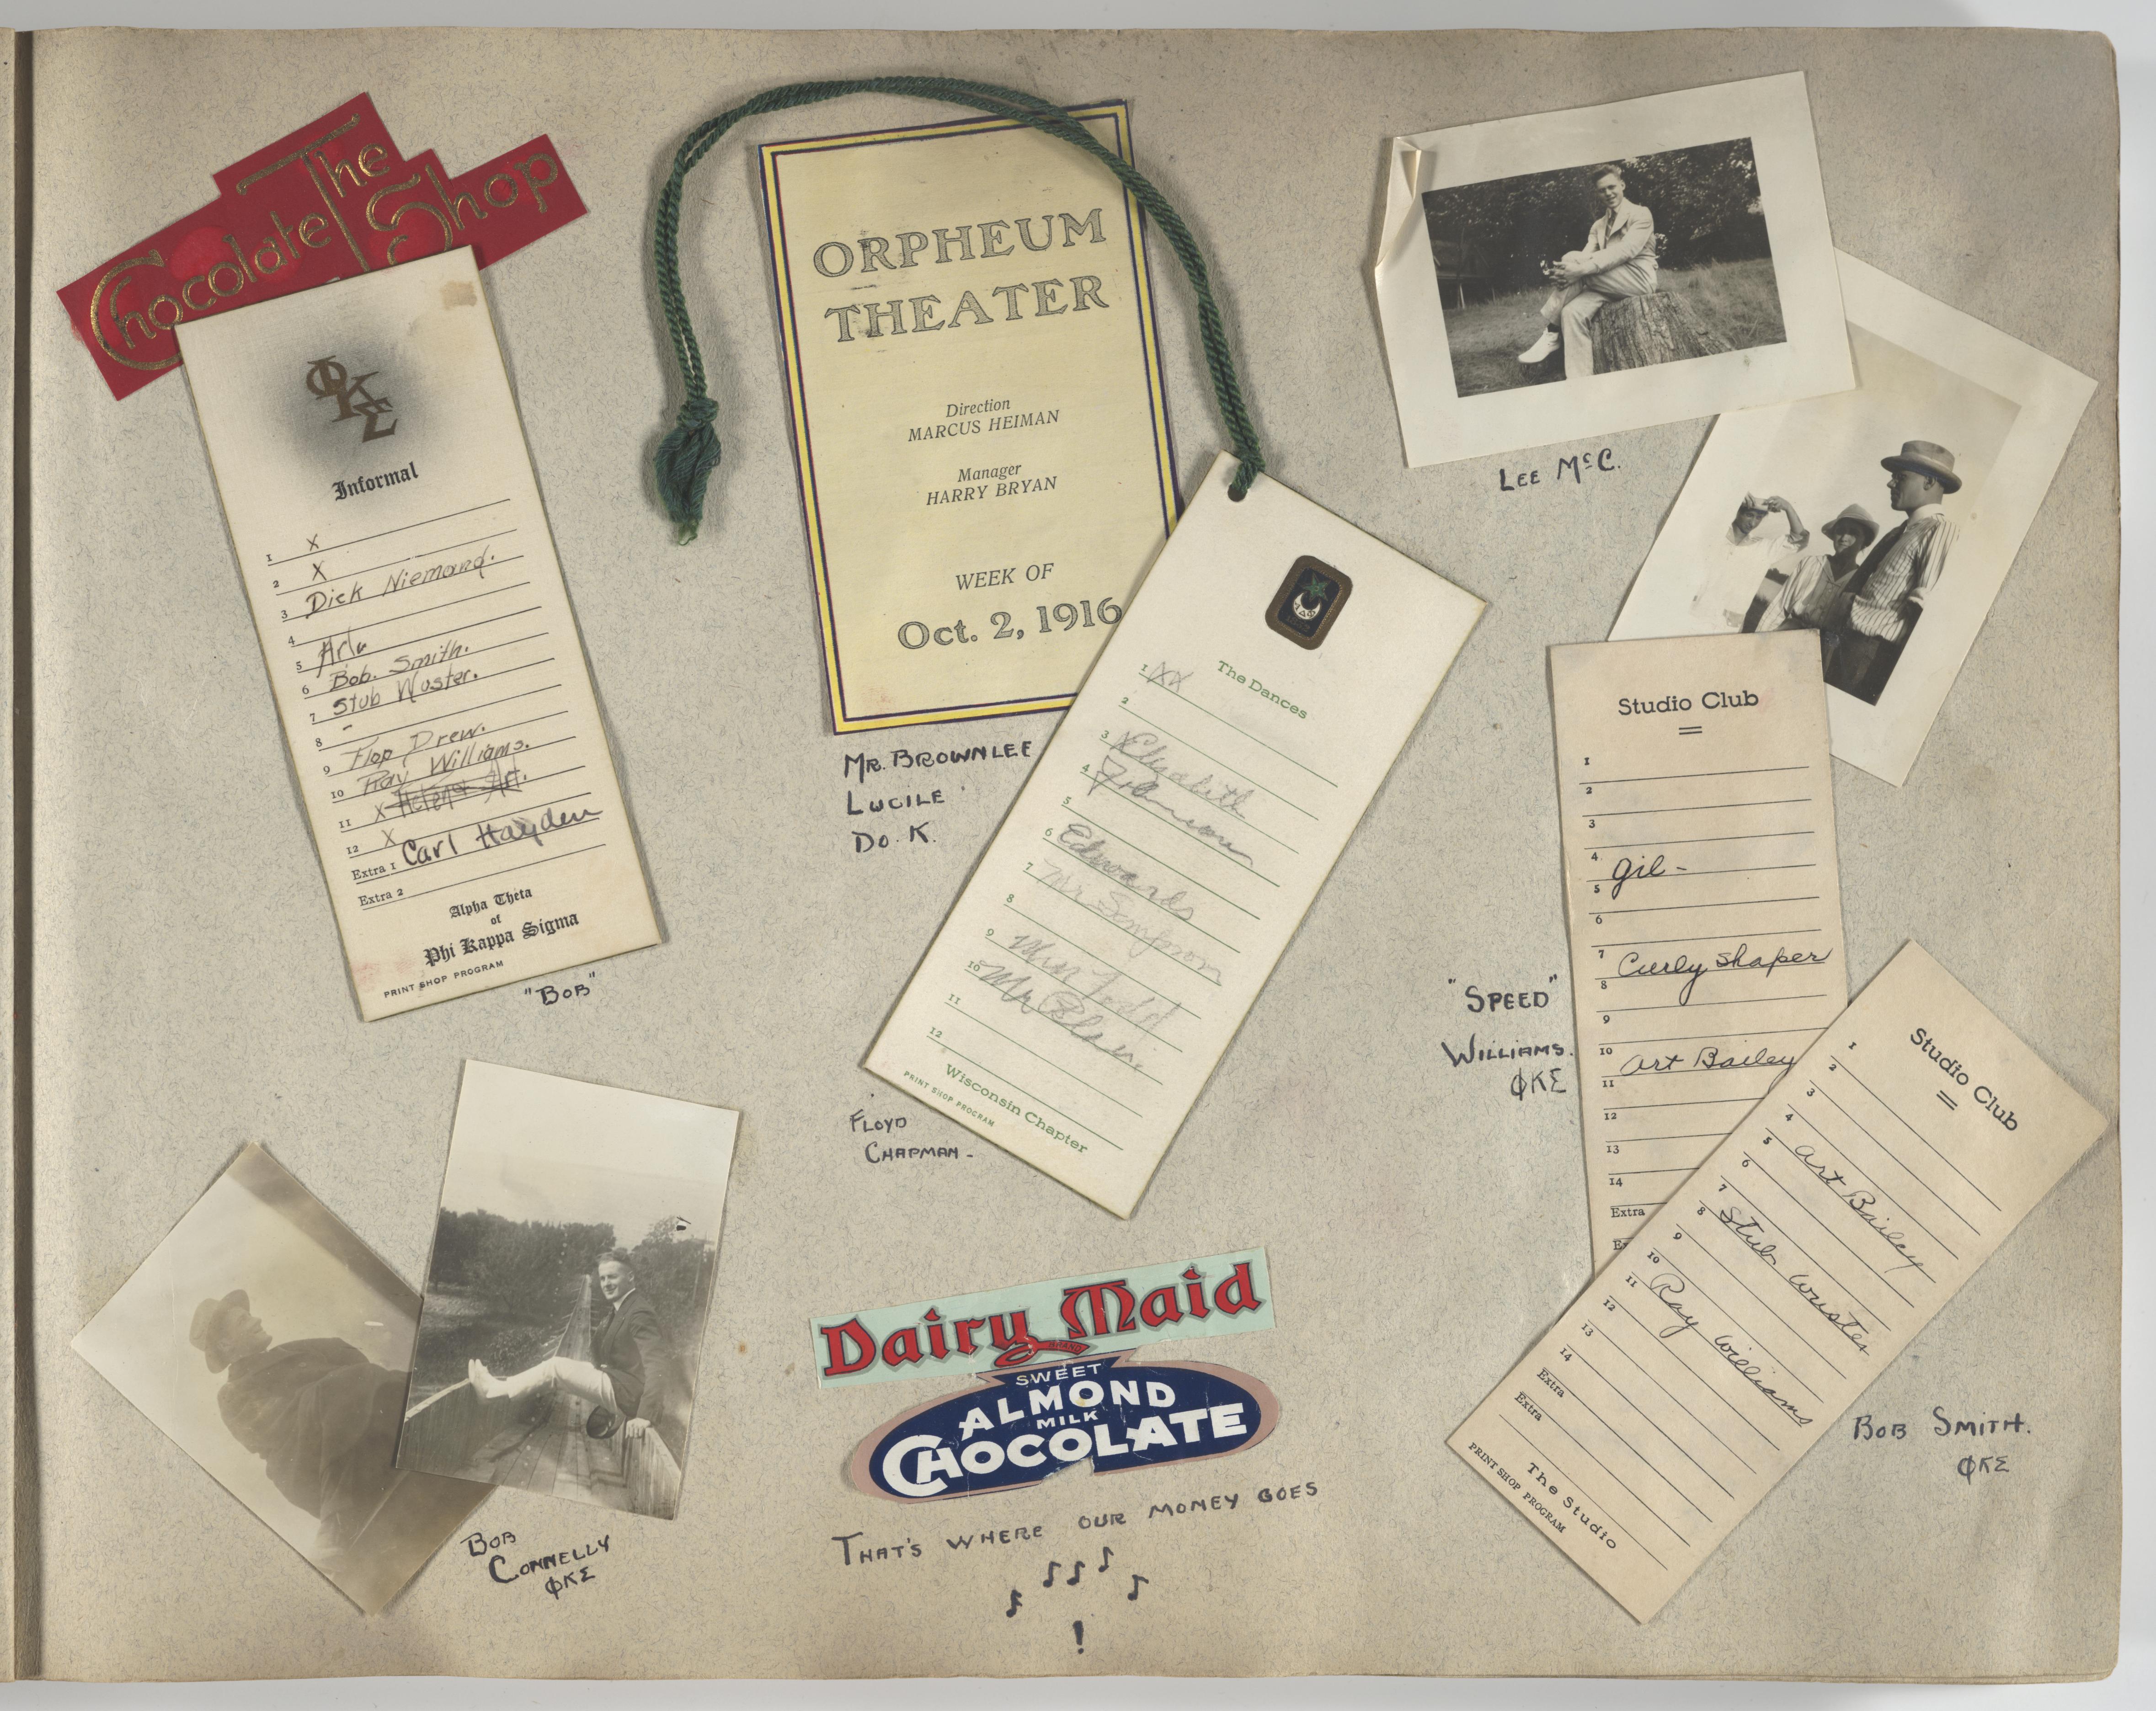 The
Chocolate Shop
ΦΚΣ
Informal
1 X
2 X
3 Dick Niemand.
4
5 Arlo
6 Bob. Smith.
7 Stub Wuster.
8 -
9 Flop Drew.
10 Ray Williams.
11 X Helena Art.
12 X
Extra 1 Carl Hayden
Extra 2
Alpha Theta
of
Phi Kappa Sigma
PRINT SHOP PROGRAM
"BOB"
ORPHEUM
THEATER
Direction
MARCUS HEIMAN
Manager
HARRY BRYAN
WEEK OF
Oct. 2, 1916
MR. BROWNLEE
LUCILE
DO. K.
The Dances
1 XX
2
3 Elizabeth
4 Johnson
5
6 Edwards
7 Mr Simpson
8
9 Todd
10 Mr
11
12
Wisconsin Chapter
PRINT SHOP PROGRAM
FLOYD
CHAPMAN -
LEE McC.
Studio Club
1
2
3
4
5 Gil-
6
7
8 Curly Shaper
9
10
11 Art Bailey
12
13
14
Extra
"SPEED"
WILLIAMS.
ΦΚΣ
Studio Club
1
2
3
4
5 Art Bailey
6
7
8 Stub Wuster
9
10
11 Ray Williams
12
13
14
Extra
Extra
The Studio
PRINT SHOP PROGRAM
BOB SMITH.
ΦΚΣ
BOB
CONNELLY
ΦΚΣ
Dairy Maid
BRAND
SWEET
ALMOND
MILK
CHOCOLATE
THAT'S WHERE OUR MONEY GOES
!